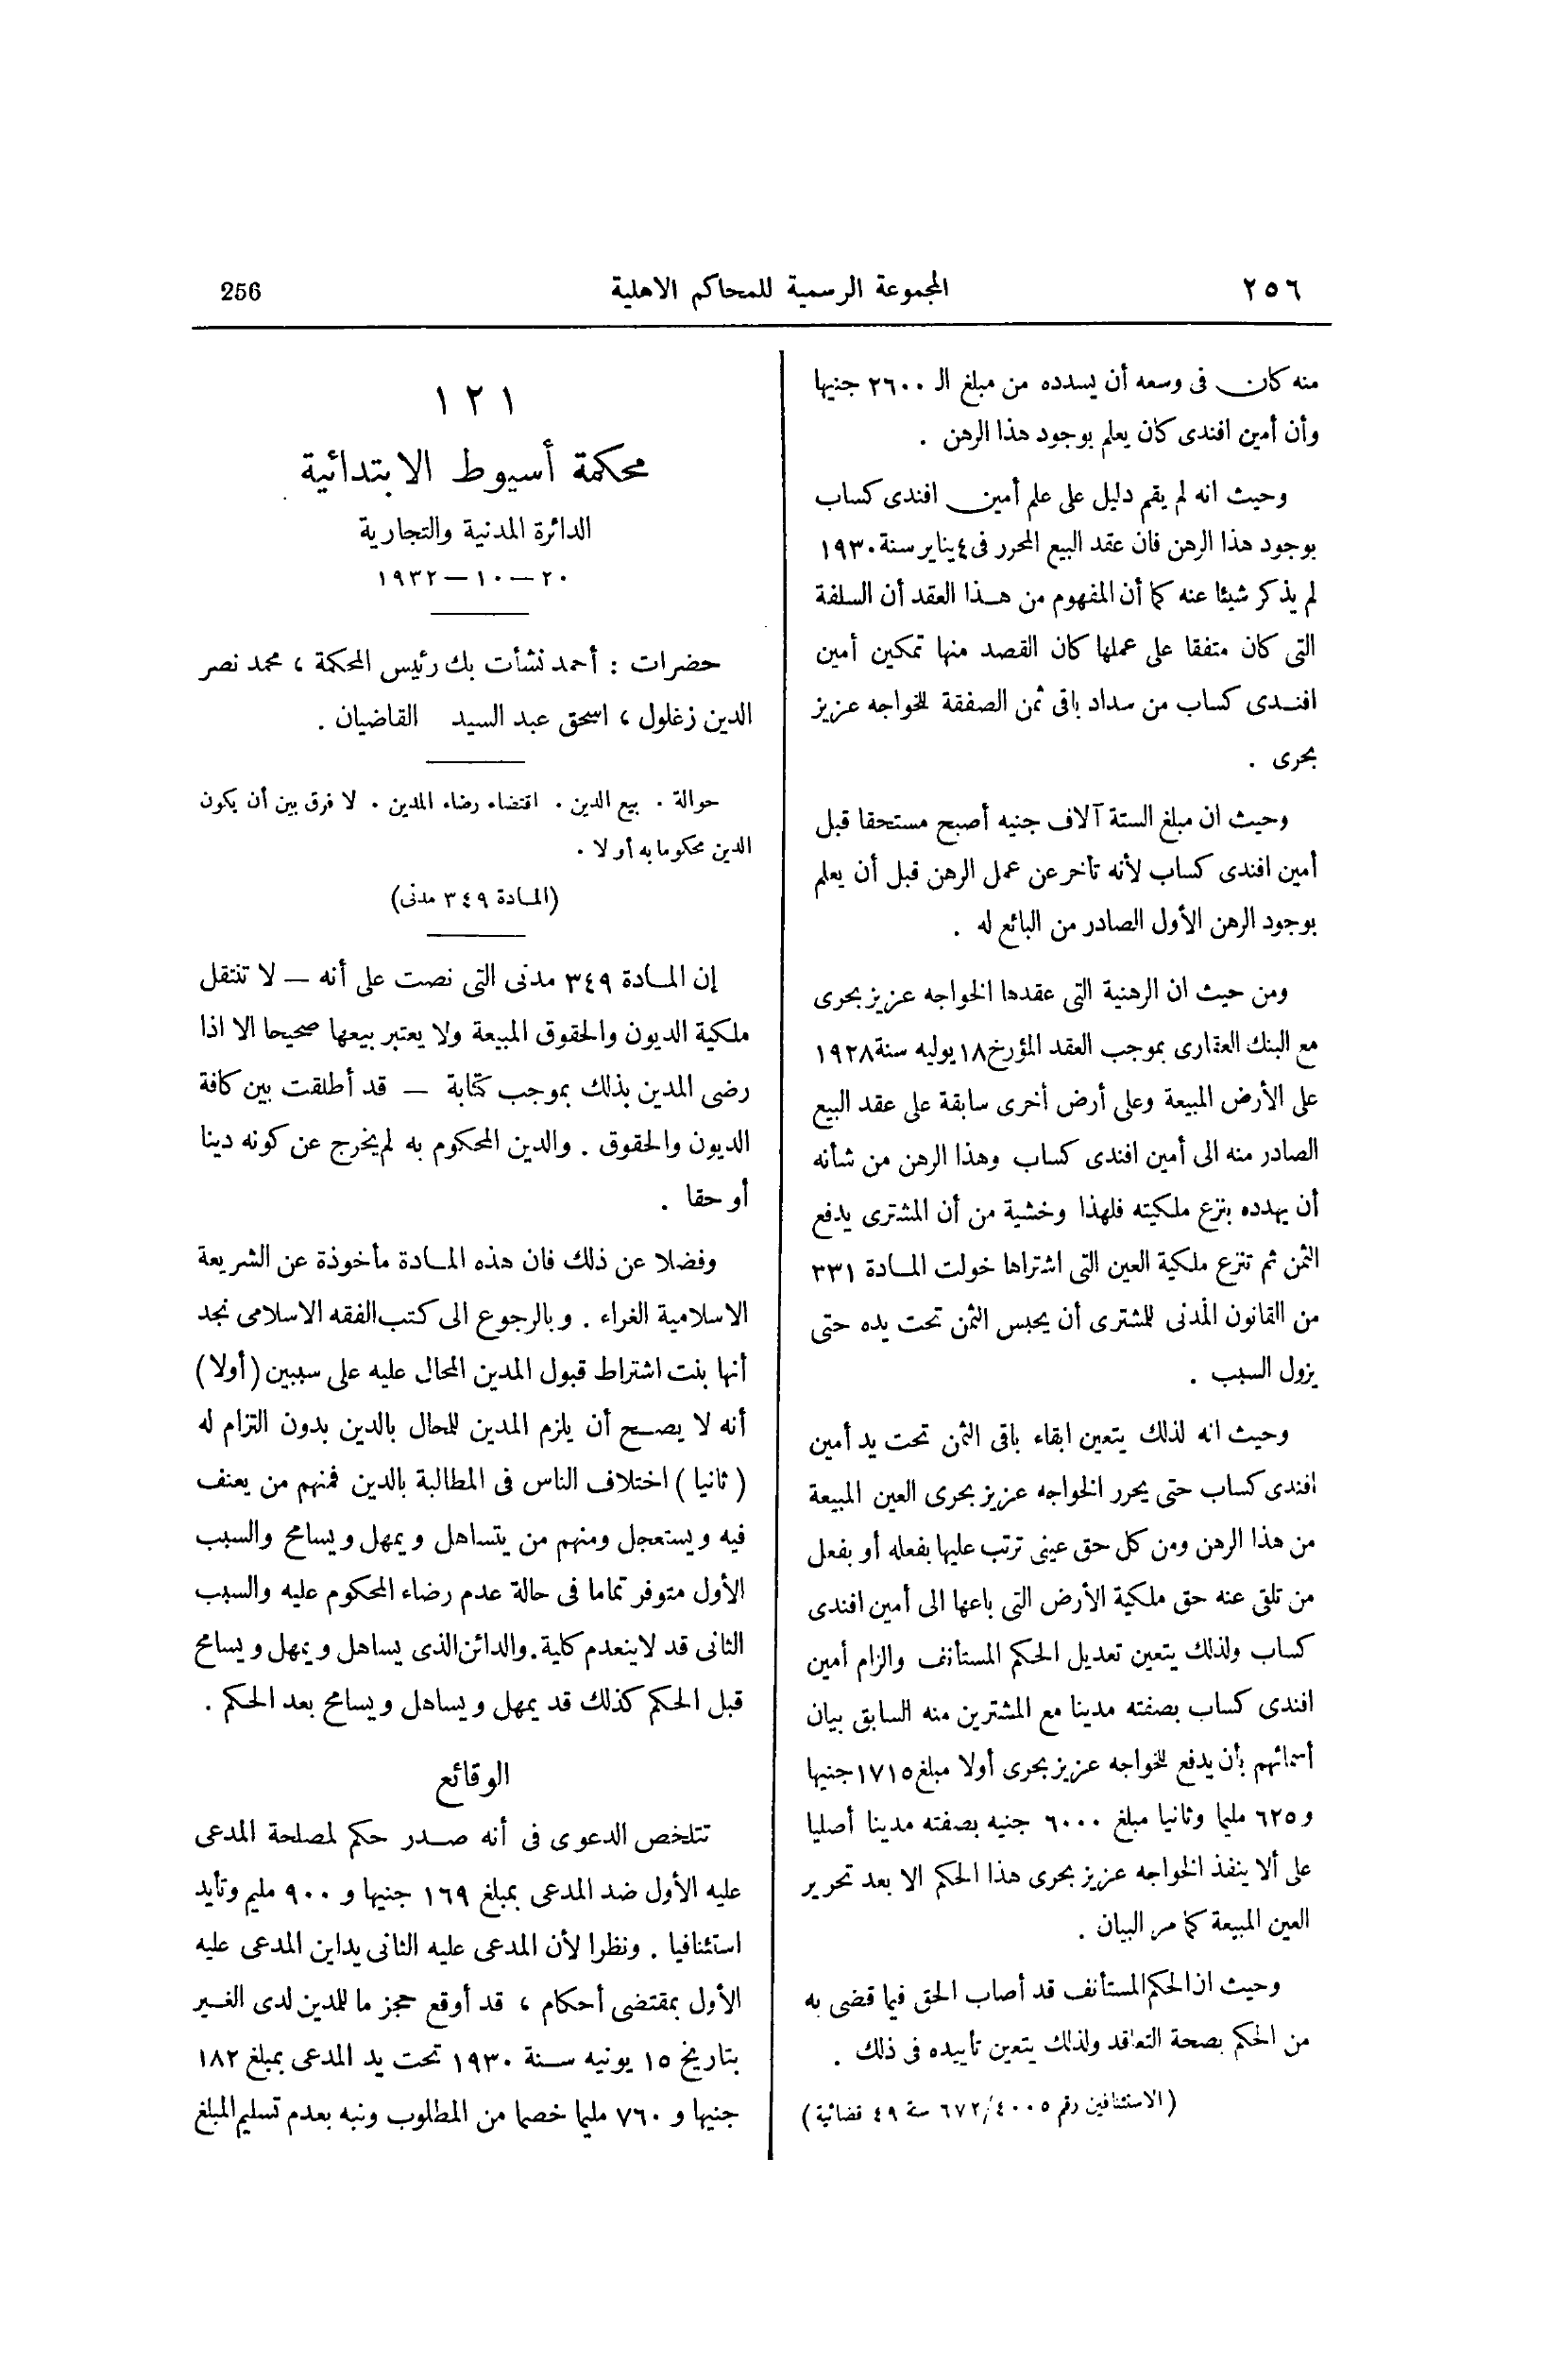 ٢٥٦
المجموعة الرسمية للمحاكم الاهلية
256
منه كان فى وسعه أن يسدده من مبلغ الـ ٢٦٠٠ جنيها
وأن أمين افندى كان يعلم بوجود هذا الرهن .
وحيث انه لم يقم دليل على علم أمين افندى كساب
بوجود هذا الرهن فان عقد البيع المحرر فى ٤ يناير سنة ١٩٣٠
لم يذكر شيئا عنه كما أن المفهوم من هذا العقد أن السلفة
التى كان متفقا على عملها كان القصد منها تمكين أمين
افندى كساب من سداد باقى ثمن الصفقة للخواجه عزيز
بحرى .
وحيث ان مبلغ الستة آلاف جنيه أصبح مستحقا قبل
أمين افندى كساب لأنه تأخر عن عمل الرهن قبل أن يعلم
بوجود الرهن الأول الصادر من البائع له .
ومن حيث ان الرهنية التى عقدها الخواجه عزيز بحرى
مع البنك العقارى بموجب العقد المؤرخ ١٨ يوليه سنة ١٩٢٨
على الأرض المبيعة وعلى أرض أخرى سابقة على عقد البيع
الصادر منه الى أمين افندى كساب وهذا الرهن من شأنه
أن يهدده بنزع ملكيته فلهذا وخشية من أن المشترى يدفع
الثمن ثم تنزع ملكية العين التى اشتراها خولت المادة ٣٣١
من القانون المدنى للمشترى أن يحبس الثمن تحت يده حتى
يزول السبب .
وحيث انه لذلك يتعين ابقاء باقى الثمن تحت يد أمين
افندى كساب حتى يحرر الخواجه عزيز بحرى العين المبيعة
من هذا الرهن ومن كل حق عينى ترتب عليها بفعله أو بفعل
من تلقى عنه حق ملكية الأرض التى باعها الى أمين افندى
كساب ولذلك يتعين تعديل الحكم المستأنف والزام أمين
افندى كساب بصفته مدينا مع المشترين منه السابق بيان
أسمائهم بأن يدفع للخواجه عزيز بحرى أولا مبلغ ١٧١٥ جنيها
و ٦٢٥ مليما وثانيا مبلغ ٦٠٠٠ جنيه بصفته مدينا أصليا
على ألا ينفذ الخواجه عزيز بحرى هذا الحكم الا بعد تحرير
العين المبيعة كما مر البيان .
وحيث ان الحكم المستأنف قد أصاب الحق فيما قضى به
من الحكم بصحة التعاقد ولذلك يتعين تأييده فى ذلك .
(الاستئنافين رقم ٤٠٠٥/٦٧٢ سنة ٤٩ قضائية)
١٢١
محكمة أسيوط الابتدائية
الدائرة المدنية والتجارية
٢٠ — ١٠ — ١٩٣٢
حضرات : أحمد نشأت بك رئيس المحكمة ، محمد نصر
الدين زغلول ، اسحق عبد السيد القاضيان .
حوالة . بيع الدين . اقتضاء رضاء المدين . لا فرق بين أن يكون
الدين محكوما به أو لا .
(المادة ٣٤٩ مدنى)
إن المادة ٣٤٩ مدنى التى نصت على أنه — لا تنتقل
ملكية الديون والحقوق المبيعة ولا يعتبر بيعها صحيحا الا اذا
رضى المدين بذلك بموجب كتابة — قد أطلقت بين كافة
الديون والحقوق . والدين المحكوم به لم يخرج عن كونه دينا
أو حقا .
وفضلا عن ذلك فان هذه المادة مأخوذة عن الشريعة
الاسلامية الغراء . وبالرجوع الى كتب الفقه الاسلامى نجد
أنها بنت اشتراط قبول المدين المحال عليه على سببين (أولا)
أنه لا يصح أن يلزم المدين للمحال بالدين بدون التزام له
(ثانيا) اختلاف الناس فى المطالبة بالدين فمنهم من يعنف
فيه ويستعجل ومنهم من يتساهل ويمهل ويسامح والسبب
الأول متوفر تماما فى حالة عدم رضاء المحكوم عليه والسبب
الثانى قد لا ينعدم كلية . والدائن الذى يساهل ويمهل ويسامح
قبل الحكم كذلك قد يمهل ويساهل ويسامح بعد الحكم .
الوقائع
تتلخص الدعوى فى أنه صدر حكم لمصلحة المدعى
عليه الأول ضد المدعى بمبلغ ١٦٩ جنيها و ٩٠٠ مليم وتأيد
استئنافيا . ونظرا لأن المدعى عليه الثانى يداين المدعى عليه
الأول بمقتضى أحكام ، قد أوقع حجز ما للمدين لدى الغير
بتاريخ ١٥ يونيه سنة ١٩٣٠ تحت يد المدعى بمبلغ ١٨٢
جنيها و ٧٦٠ مليما خصما من المطلوب ونبه بعدم تسليم المبلغ